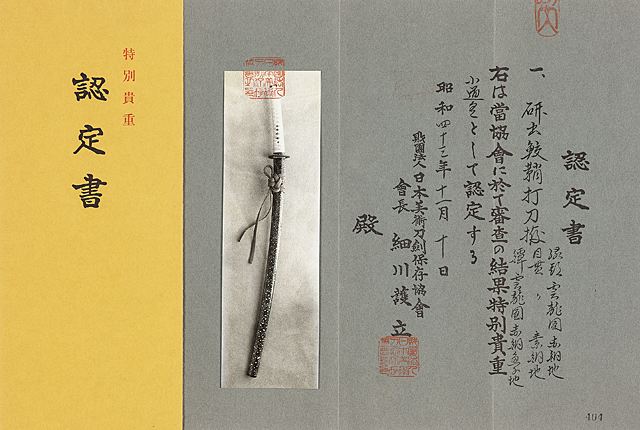 特別貴重
認定書
認定書
一、研出鮫鞘打刀拵
縁頭 雲龍図 赤銅地
目貫 〃 素銅地
鐔 雲龍図 赤銅魚子地
右は當協會に於て審査の結果特別貴重
小道具として認定する
昭和四十三年十一月十日
財團法人日本美術刀劍保存協會
會長 細川護立
殿
404